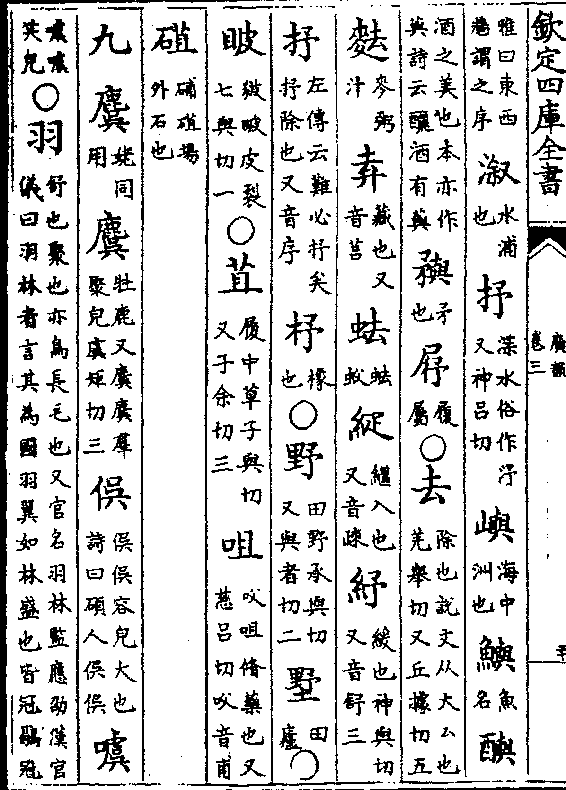 欽定四庫全書
廣韻
卷三
雅曰東西牆謂之序 溆水浦也 抒渫水俗作汿又神呂切 嶼海中洲也 鱮魚名 醹
酒之美也本亦作藇詩云釃酒有藇 䂛矛也 屐履屬○去除也說文从大𠙴也羌舉切又丘據切五
麩麥粥汁 弆藏也又音莒 蚨蚨蚁 縱繼入也又音疎 紓緩也神與切又音舒三
抒左傳云難必抒矣抒除也又音序 杼橡也○野田野承與切又與者切二 墅田廬○
㿱皴㿱皮裂七與切一○苴履中草子與切又子余切三 咀㕮咀脩藥也又慈呂切㕮音甫
𥔋硝𥔋場外石也
九麌姥同用 麌牡鹿又麌麌羣聚皃虞矩切三 俁俁俁容皃大也詩曰碩人俁俁 噳
噳噳笑皃○羽舒也聚也亦鳥長毛也又官名羽林監應劭漢官儀曰羽林者言其為國羽翼如林盛也皆冠鶡冠